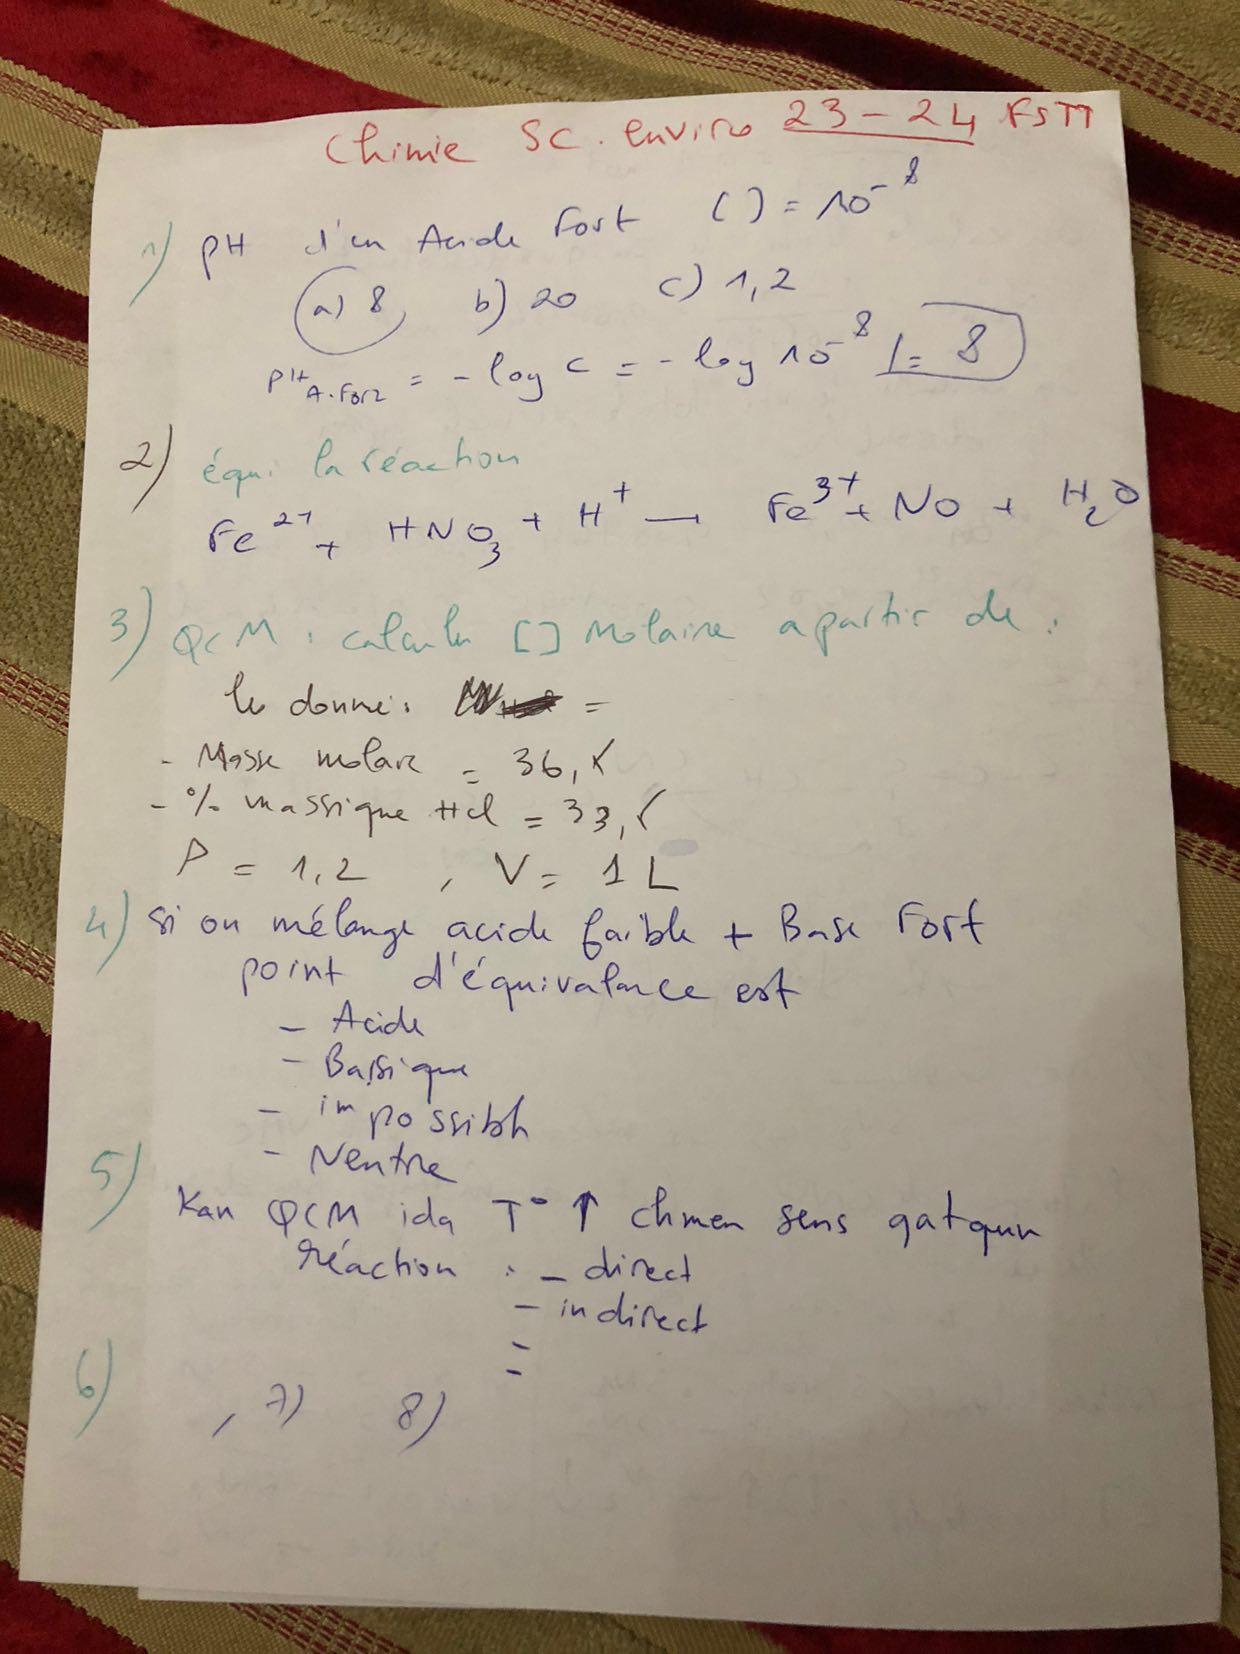 Chimie SC. enviro 23-24 FSTT
1) pH d'un Acide Fort [ ] = 10^-8
a) 8 b) 20 c) 1,2
pH A.Fort = - log C = - log 10^-8 = 8
2) équi la réaction
Fe^2+ + HNO3 + H^+ → Fe^3+ + NO + H2O
3) QCM : calculer [ ] Molaire a partir de :
les donné : =
- Masse molare = 36,
- % massique HCl = 33,
ρ = 1,2 , V = 1 L
4) si on mélange acide faible + Base Fort
point d'équivalance est
- Acide
- Bassique
- impossible
- Neutre
5) Kan QCM ida T° ↑ chmen sens gatqun
réaction : - direct
- indirect
-
-
6) , 7) 8)